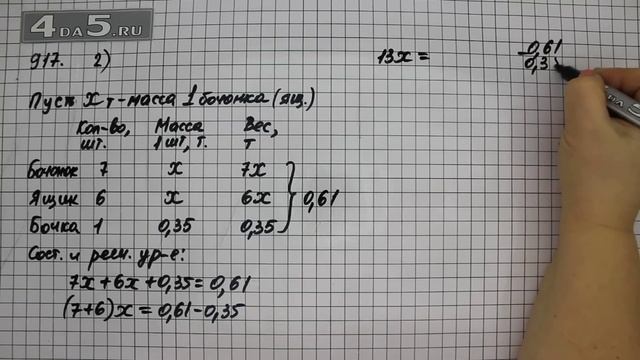 4DA5.RU
917. 2)
Пусть X т-масса 1 бочонка (ящ.)
Кол-во, шт. Масса 1 шт, т. Вес, т
Бочонок 7 x 7x
Ящик 6 x 6x
Бочка 1 0,35 0,35
0,61
Сост. и реш. ур-е:
7x + 6x + 0,35 = 0,61
(7+6)x = 0,61 - 0,35
13x =
0,61
0,3